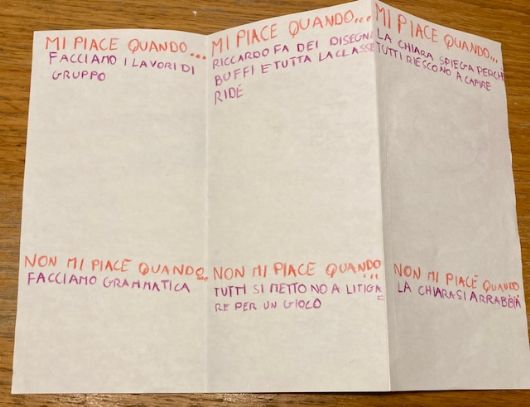 MI PIACE QUANDO...
FACCIAMO I LAVORI DI
GRUPPO
MI PIACE QUANDO...
RICCARDO FA DEI DISEGNI
BUFFI E TUTTA LA CLASSE
RIDE
MI PIACE QUANDO...
LA CHIARA SPIEGA PERCHE
TUTTI RIESCONO A CAPIRE
NON MI PIACE QUANDO...
FACCIAMO GRAMMATICA
NON MI PIACE QUANDO
...
TUTTI SI METTONO A LITIGA
RE PER UN GIOCO
NON MI PIACE QUANDO
...
LA CHIARA SI ARRABBIA